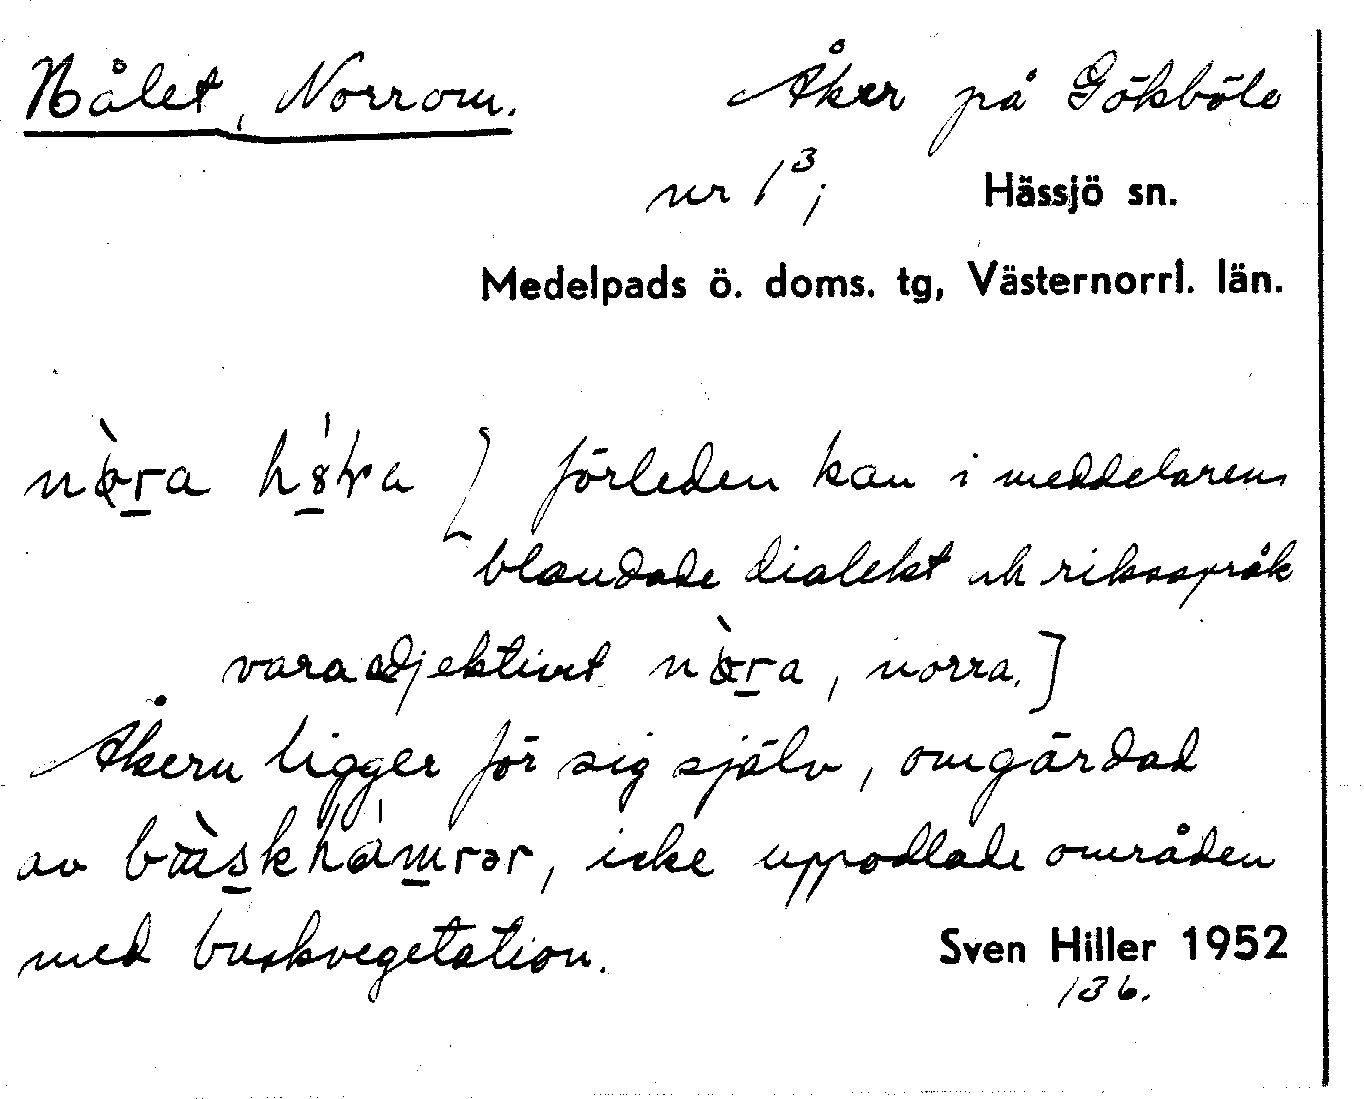 Hålet, Norrom. Åker på Gökböle
nr 1³; Hässjö sn.
Medelpads ö. doms. tg, Västernorrl. län.
[förleden kan i meddelarens
blandade dialekt och riksspråk
vara adjektivet nòra, norra.]
Åkern ligger för sig själv, omgärdad
av icke uppodlade områden
med buskvegetation. Sven Hiller 1952
136.